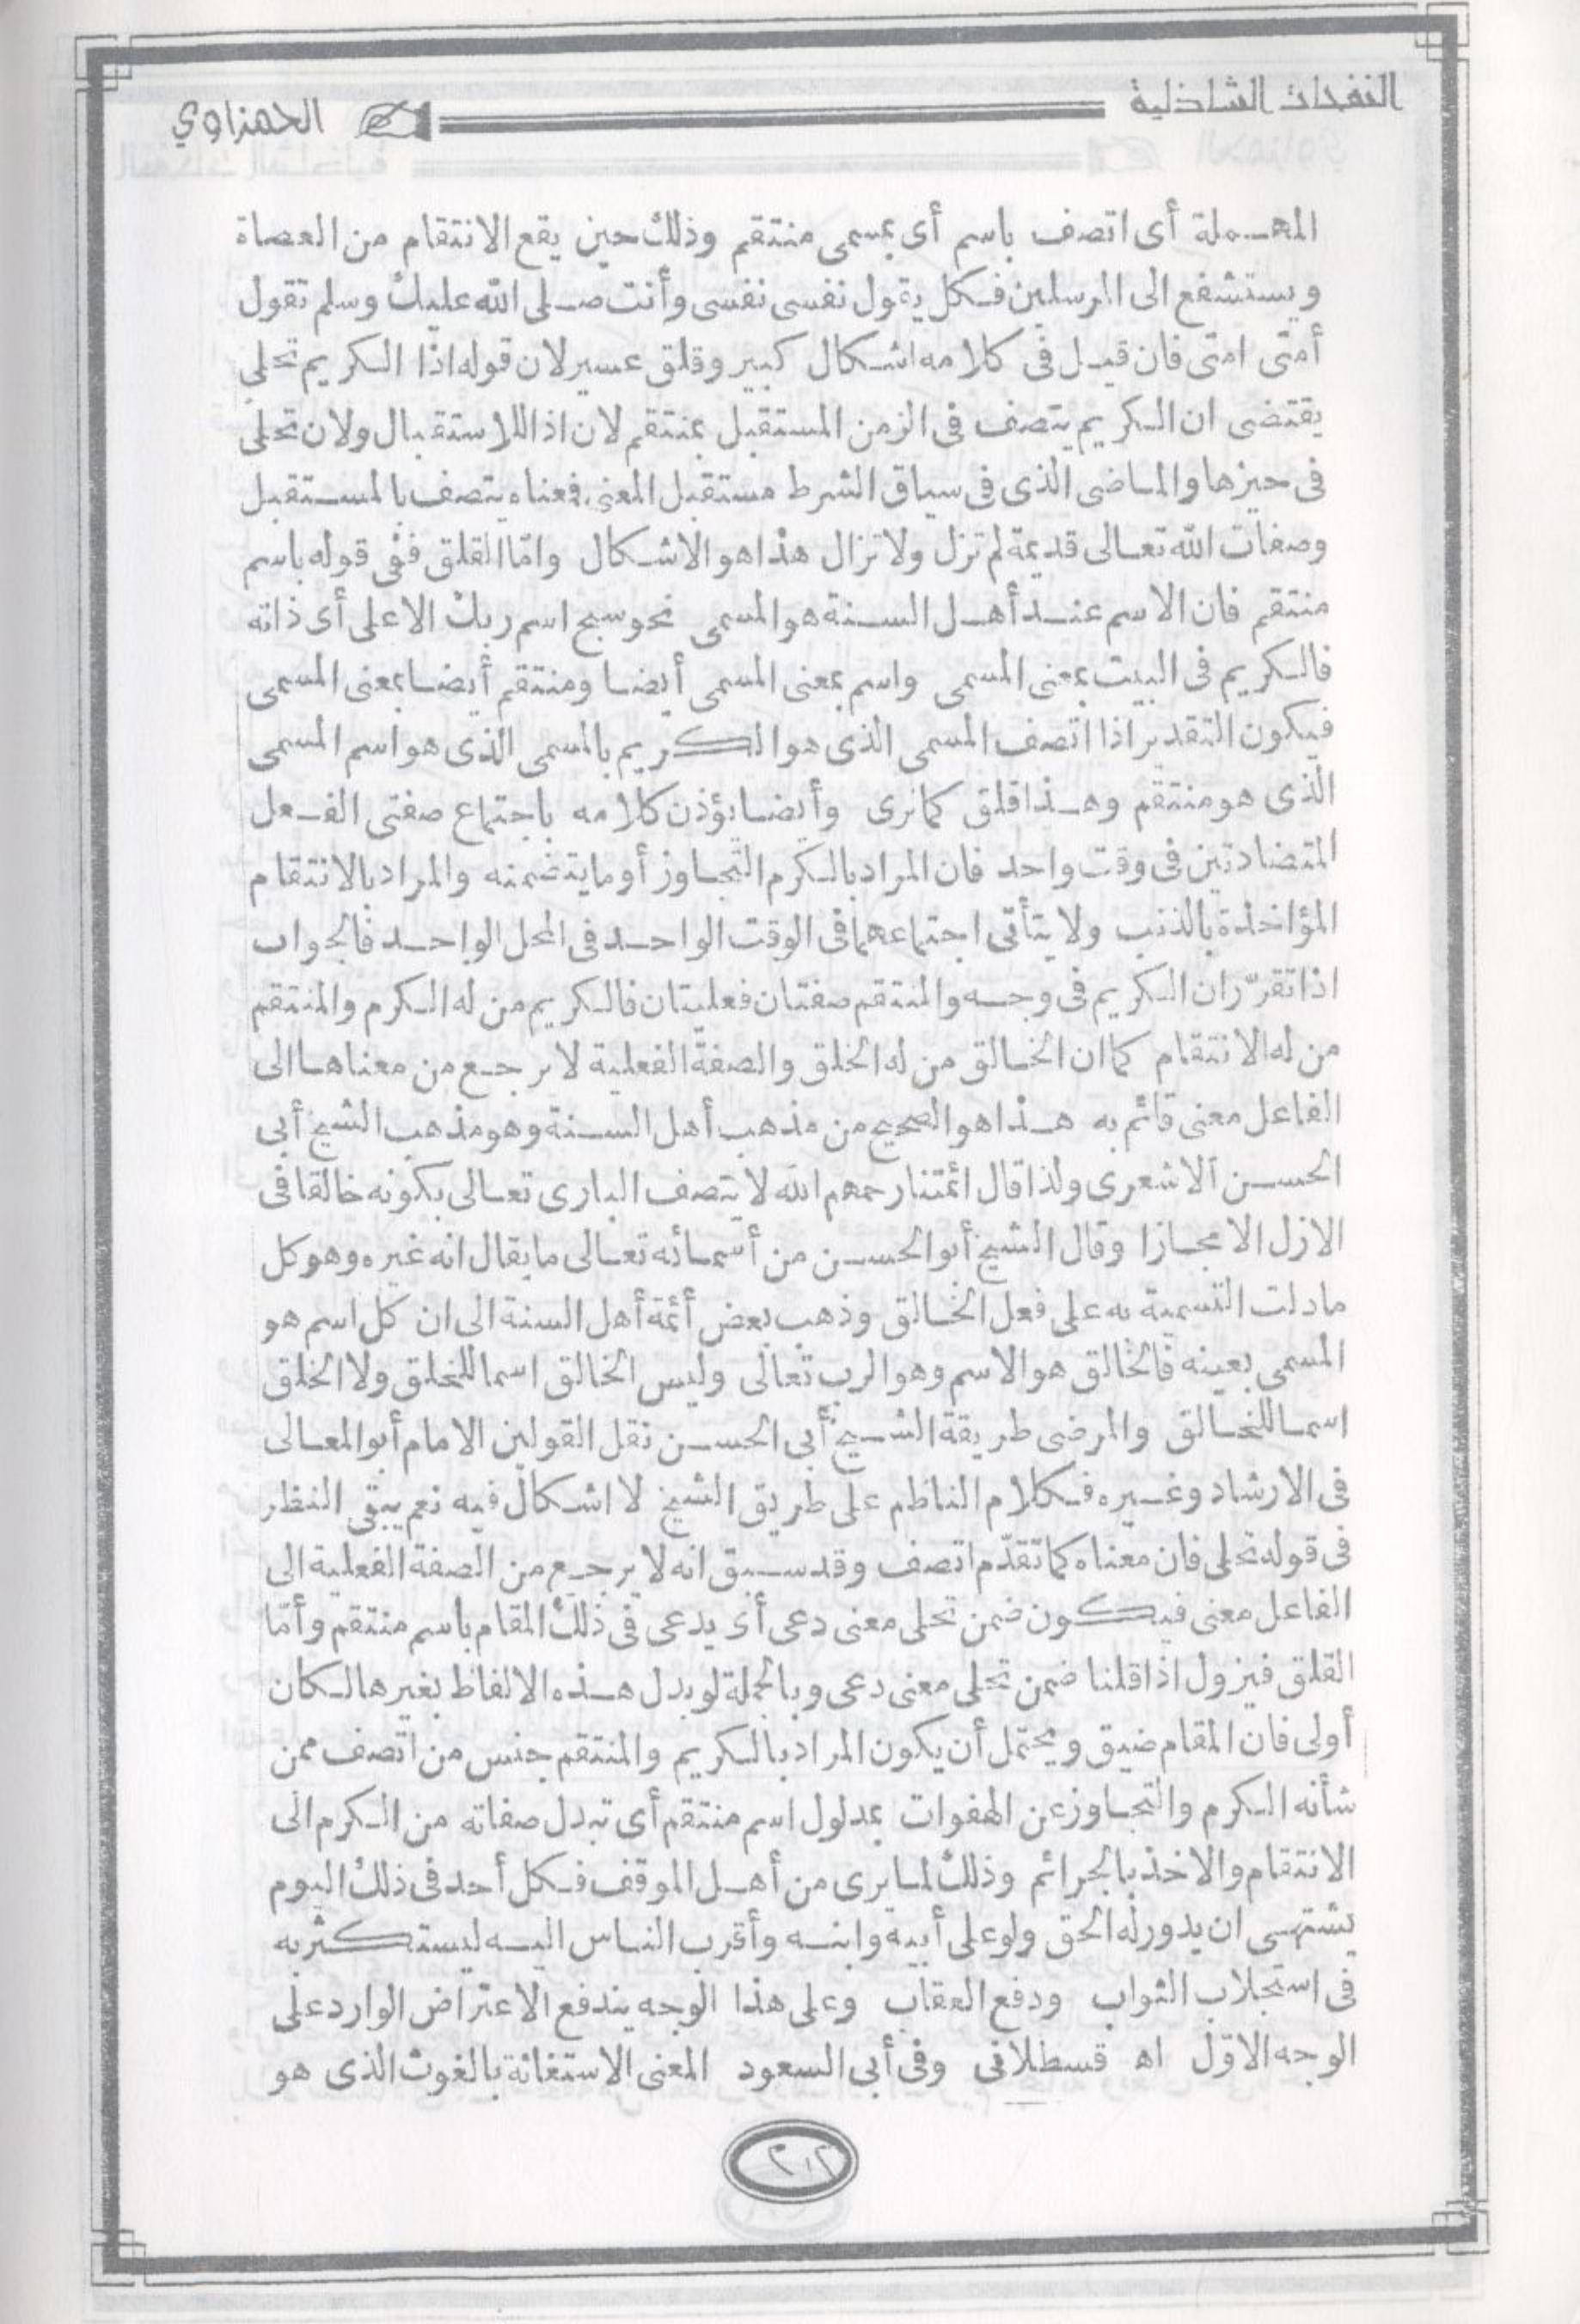 النفحات الشاذلية
الحمزاوي
المهملة أى اتصف باسم أى بمسمى منتقم وذلك حين يقع الانتقام من العصاة
ويستشفع الى المرسلين فكل يقول نفسى نفسى وأنت صلى الله عليك وسلم تقول
أمتى امتى فان قيل فى كلامه اشكال كبير وقلق عسير لان قوله اذا الكريم تحلى
يقتضى ان الكريم يتصف فى الزمن المستقبل بمنتقم لان اذا للاستقبال ولان تحلى
فى حيزها والماضى الذى فى سياق الشرط مستقبل المعنى فعناه يتصف بالمستقبل
وصفات الله تعالى قديمة لم تزل ولا تزال هذا هو الاشكال وامّا القلق ففى قوله باسم
منتقم فان الاسم عند أهل السنة هو المسمى نحو سبح اسم ربك الاعلى أى ذاته
فالكريم فى البيت بمعنى المسمى واسم بمعنى المسمى أيضا ومنتقم أيضا بمعنى المسمى
فيكون التقدير اذا اتصف المسمى الذى هو الكريم بالمسمى الذى هو اسم المسمى
الذى هو منتقم وهذا قلق كما ترى وأيضا يؤذن كلامه باجتماع صفتى الفعل
المتضادتين فى وقت واحد فان المراد بالكرم التجاوز أو ما يتضمنه والمراد بالانتقام
المؤاخذة بالذنب ولا يتأتى اجتماعهما فى الوقت الواحد فى المحل الواحد فالجواب
اذا تقرّر ان الكريم فى وجه والمنتقم صفتان فعليتان فالكريم من له الكرم والمنتقم
من له الانتقام كما ان الخالق من له الخلق والصفة الفعلية لا يرجع من معناها الى
الفاعل معنى قائم به هذا هو الصحيح من مذهب أهل السنة وهو مذهب الشيخ أبى
الحسن الاشعرى ولذا قال ائمتنا رحمهم الله لا يتصف البارى تعالى بكونه خالقا فى
الازل الا مجازا وقال الشيخ أبو الحسن من أسمائه تعالى ما يقال انه غيره وهو كل
ما دلت التسمية به على فعل الخالق وذهب بعض أئمة أهل السنة الى ان كل اسم هو
المسمى بعينه فالخالق هو الاسم وهو الرب تعالى وليس الخالق اسما للخلق ولا الخلق
اسما للخالق والمرضى طريقة الشيخ أبى الحسن نقل القولين الامام أبو المعالى
فى الارشاد وغيره فكلام الناظم على طريق الشيخ لا اشكال فيه نعم يبقى النظر
فى قوله تحلى فان معناه كما تقدّم اتصف وقد سبق انه لا يرجع من الصفة الفعلية الى
الفاعل معنى فيكون ضمن تحلى معنى دعى أى يدعى فى ذلك المقام باسم منتقم وأمّا
القلق فيزول اذا قلنا ضمن تحلى معنى دعى وبالجملة لو بدل هذه الالفاظ بغيرها لكان
أولى فان المقام ضيق ويحتمل أن يكون المراد بالكريم والمنتقم جنس من اتصف ممن
شأنه الكرم والتجاوز عن الهفوات بمدلول اسم منتقم أى تبدل صفاته من الكرم الى
الانتقام والاخذ بالجرائم وذلك لما يرى من أهل الموقف فكل أحد فى ذلك اليوم
يشتهى ان يدور له الحق ولو على أبيه وابنه وأقرب الناس اليه ليستكثر به
فى استجلاب الثواب ودفع العقاب وعلى هذا الوجه يندفع الاعتراض الوارد على
الوجه الاوّل اه قسطلانى وفى أبى السعود المعنى الاستغاثة بالغوث الذى هو
٢٠٢